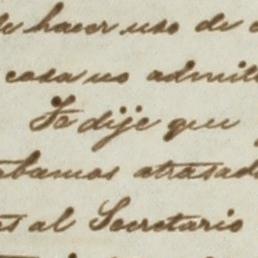 de hacer uso de
cosa no admit
Le dije que
tabamos atrasad
es al Secretario